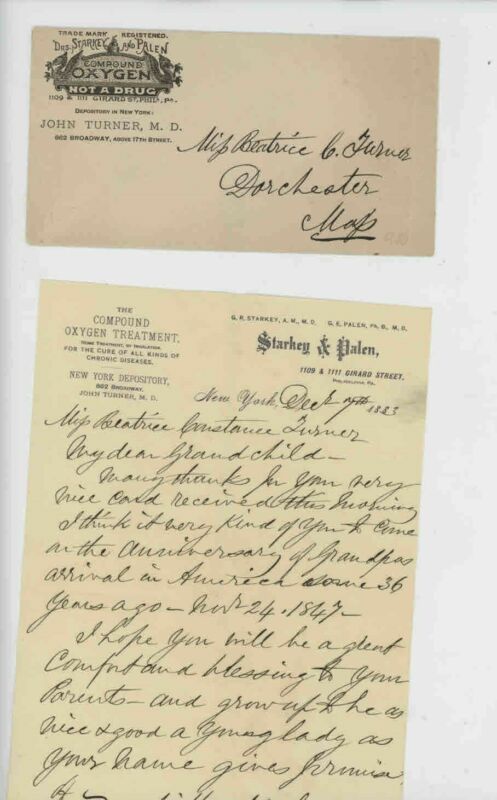 TRADE MARK REGISTERED.
DRS. STARKEY AND PALEN
COMPOUND
OXYGEN
NOT A DRUG
1109 & 1111 GIRARD ST, PHILA, PA.
DEPOSITORY IN NEW YORK:
JOHN TURNER, M. D.
862 BROADWAY, ABOVE 17TH STREET.
Miss Beatrice C. Turner
Dorchester
Mass
THE
COMPOUND
OXYGEN TREATMENT,
HOME TREATMENT, BY INHALATION,
FOR THE CURE OF ALL KINDS OF
CHRONIC DISEASES.
NEW YORK DEPOSITORY,
862 BROADWAY,
JOHN TURNER, M. D.
G. R. STARKEY, A. M., M. D. G. E. PALEN, PH. B., M. D.
Starkey & Palen,
1109 & 1111 GIRARD STREET,
PHILADELPHIA, PA.
New York, Decr 7th 1883
Miss Beatrice Constance Turner
My dear Grandchild -
Many thanks for your very
nice card received this morning
I think it very kind of you to come
on the anniversary of Grandpas
arrival in America some 36
years ago - Novr 24. 1847 -
I hope you will be a great
comfort and blessing to your
Parents - and grow up to be as
nice & good a young lady as
your name gives promise